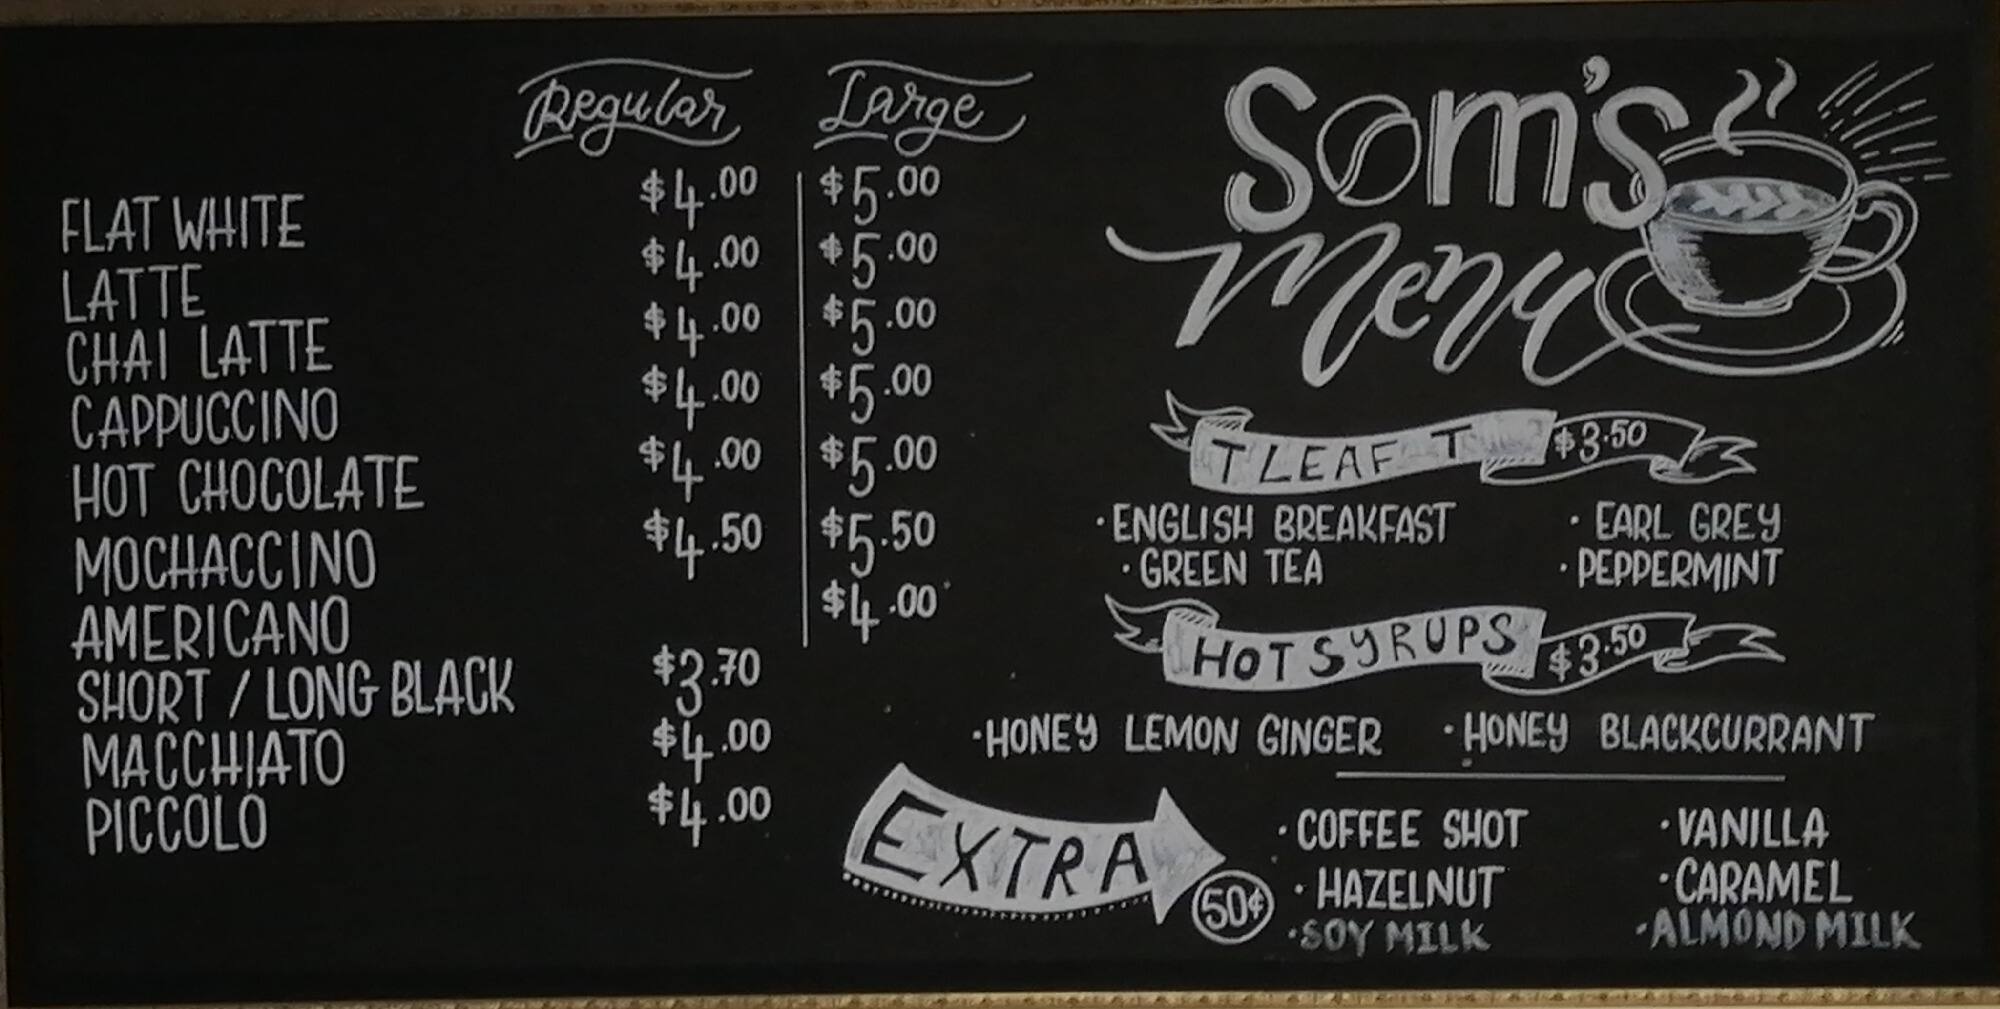 Regular Large
FLAT WHITE $4.00 $5.00
LATTE $4.00 $5.00
CHAI LATTE $4.00 $5.00
CAPPUCCINO $4.00 $5.00
HOT CHOCOLATE $4.00 $5.00
MOCHACCINO $4.50 $5.50
AMERICANO $4.00
SHORT / LONG BLACK $3.70
MACCHIATO $4.00
PICCOLO $4.00
Som's
Menu
T LEAF T $3.50
·ENGLISH BREAKFAST ·EARL GREY
·GREEN TEA ·PEPPERMINT
HOT SYRUPS $3.50
·HONEY LEMON GINGER ·HONEY BLACKCURRANT
EXTRA 50¢
·COFFEE SHOT ·VANILLA
·HAZELNUT ·CARAMEL
·SOY MILK ·ALMOND MILK